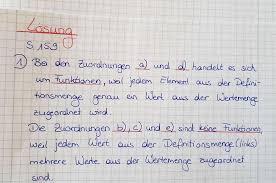 Lösung
S. 159
1) Bei den Zuordnungen a) und d) handelt es sich
um Funktionen, weil jedem Element aus der Defini-
tionsmenge genau ein Wert aus der Wertemenge
zugeordnet wird.
Die Zuordnungen b), c) und e) sind keine Funktionen,
weil jedem Wert aus der Definitionsmenge (links)
mehrere Werte aus der Wertemenge zugeordnet
sind.